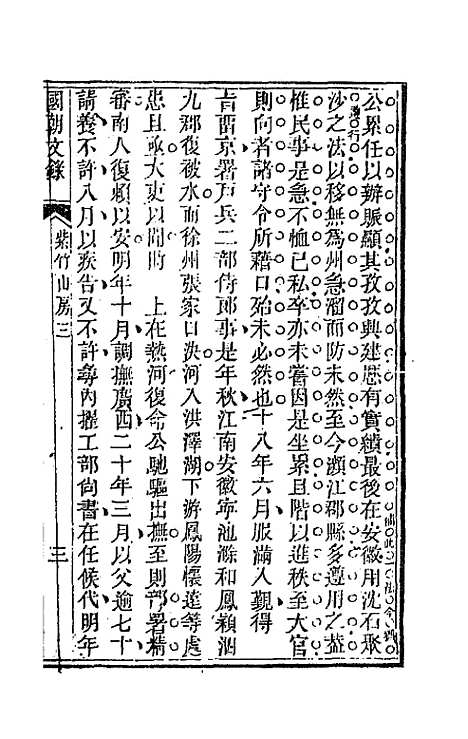 公累任以辦賑顯其孜孜興建歷有實績最後在安徽用沈石聚
沙之法以移無為州急溜而防未然至今瀕江郡縣多遵用之蓋
惟民事是急不恤已私卒亦未嘗因是坐累且階以進秩至大官
則向者諸守令所藉口殆未必然也十八年六月服滿入覲得
旨署京署戶兵二部侍郎事是年秋江南安徽寧池滁和鳳潁泗
九郡復被水而徐州張家口決河入洪澤湖下游鳳陽懷遠等處
患且亟大吏以聞時　上在熱河復命公馳驅出撫至則部署精
審南人復賴以安明年十月調撫廣西二十年三月以父逾七十
請養不許八月以疾告又不許尋內擢工部尚書在任候代明年
國朝文錄
紫竹山房三
三